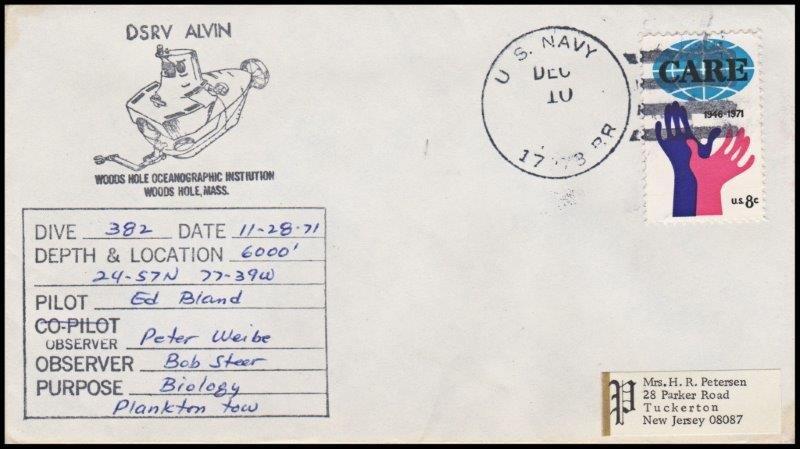 DSRV ALVIN
WOODS HOLE OCEANOGRAPHIC INSTIUTION
WOODS HOLE, MASS.
U. S. NAVY
DEC
10
BR.
CARE
1946-1971
U.S. 8c
DIVE 382 DATE 11-28-71
DEPTH & LOCATION 6000'
24-57N 77-39W
PILOT Ed Bland
CO-PILOT
OBSERVER Peter Weibe
OBSERVER Bob Steer
PURPOSE Biology
Plankton tow
P
Mrs. H. R. Petersen
28 Parker Road
Tuckerton
New Jersey 08087